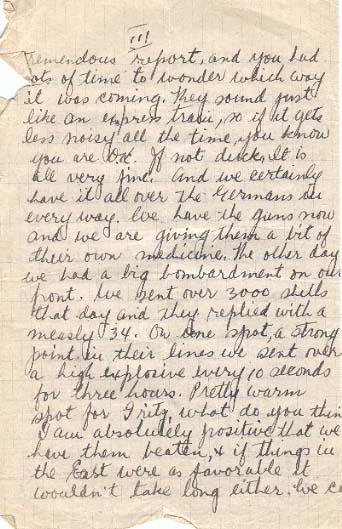 III
tremendous report, and you had
lots of time to wonder which way
it was coming. They sound just
like an express train, so if it gets
less noisy all the time, you know
you are O.K. If not duck. It is
all very fine. And we certainly
have it all over the Germans in
every way. We have the guns now
and we are giving them a bit of
their own medicine. The other day
we had a big bombardment on our
front. We sent over 3000 shells
that day and they replied with a
measly 34. On one spot, a strong
point in their lines we sent over
a high explosive every 10 seconds
for three hours. Pretty warm
spot for Fritz, what do you thin
I am absolutely positive that we
have them beaten, & if things in
the East were as favorable it
wouldn't take long either. We ca